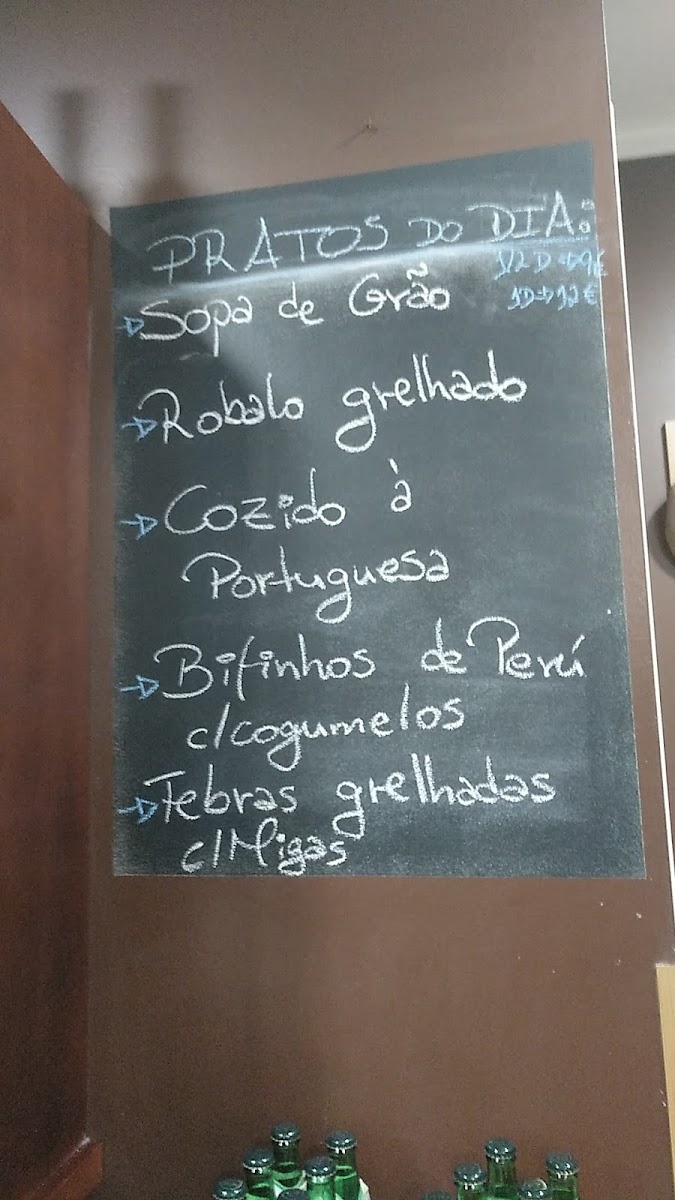 PRATOS DO DIA:
1/2 D → 9€
1D → 12€
→ Sopa de Grão
→ Robalo grelhado
→ Cozido à
Portuguesa
→ Bifinhos de Perú
c/cogumelos
→ Febras grelhadas
c/Migas